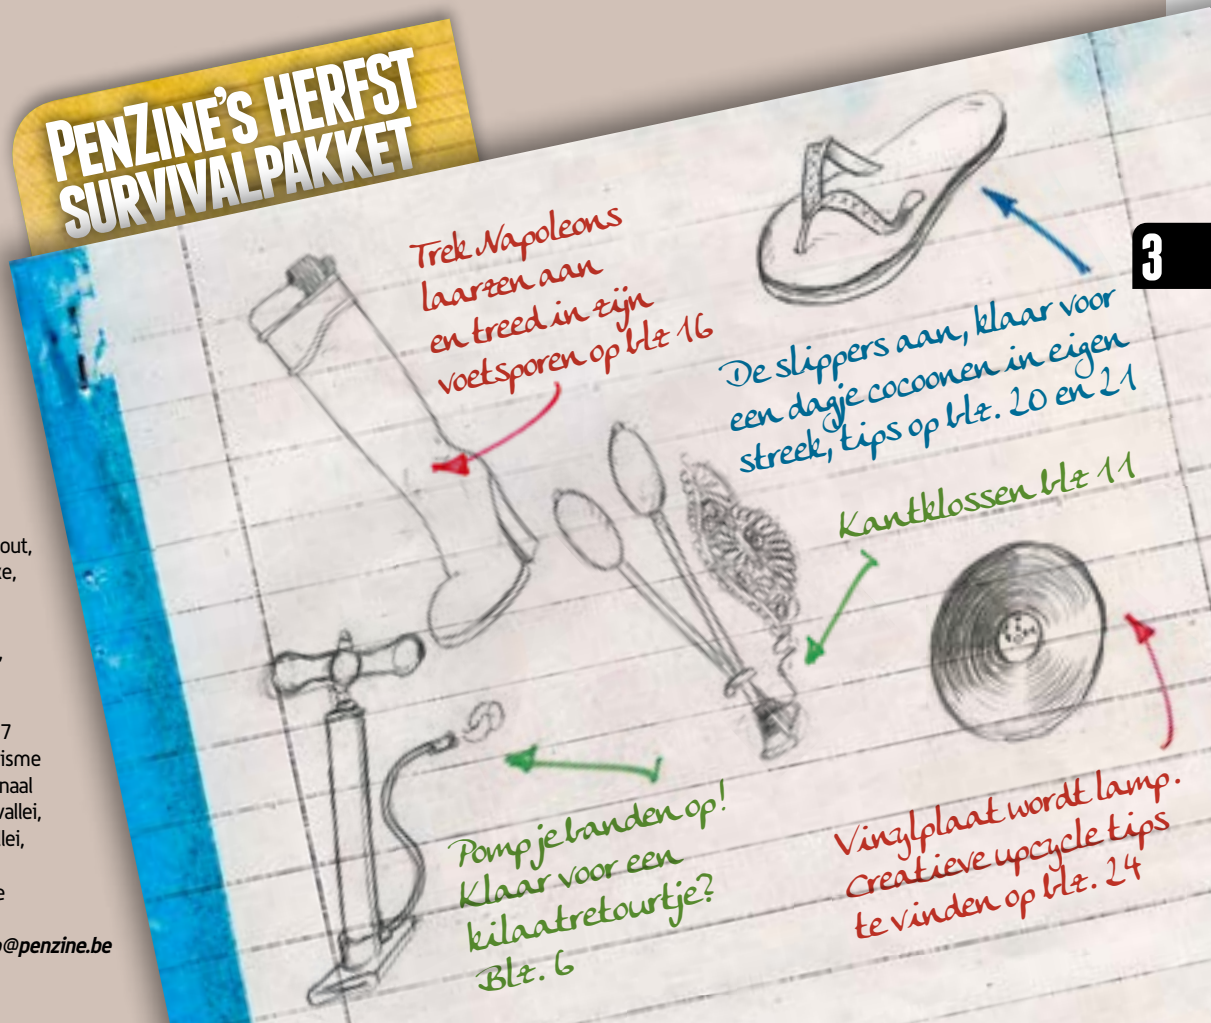 PENZINE'S HERFST
SURVIVALPAKKET
Trek Napoleons
laarzen aan
en treed in zijn
voetsporen op blz 16
3
De slippers aan, klaar voor
een dagje cocoonen in eigen
streek, tips op blz. 20 en 21
Kantklossen blz 11
Pomp je banden op!
Klaar voor een
kilaatretourtje?
Blz. 6
Vinylplaat wordt lamp.
Creatieve upcycle tips
te vinden op blz. 24
out,
e,
,
7
isme
naal
vallei,
lei,
e
@penzine.be